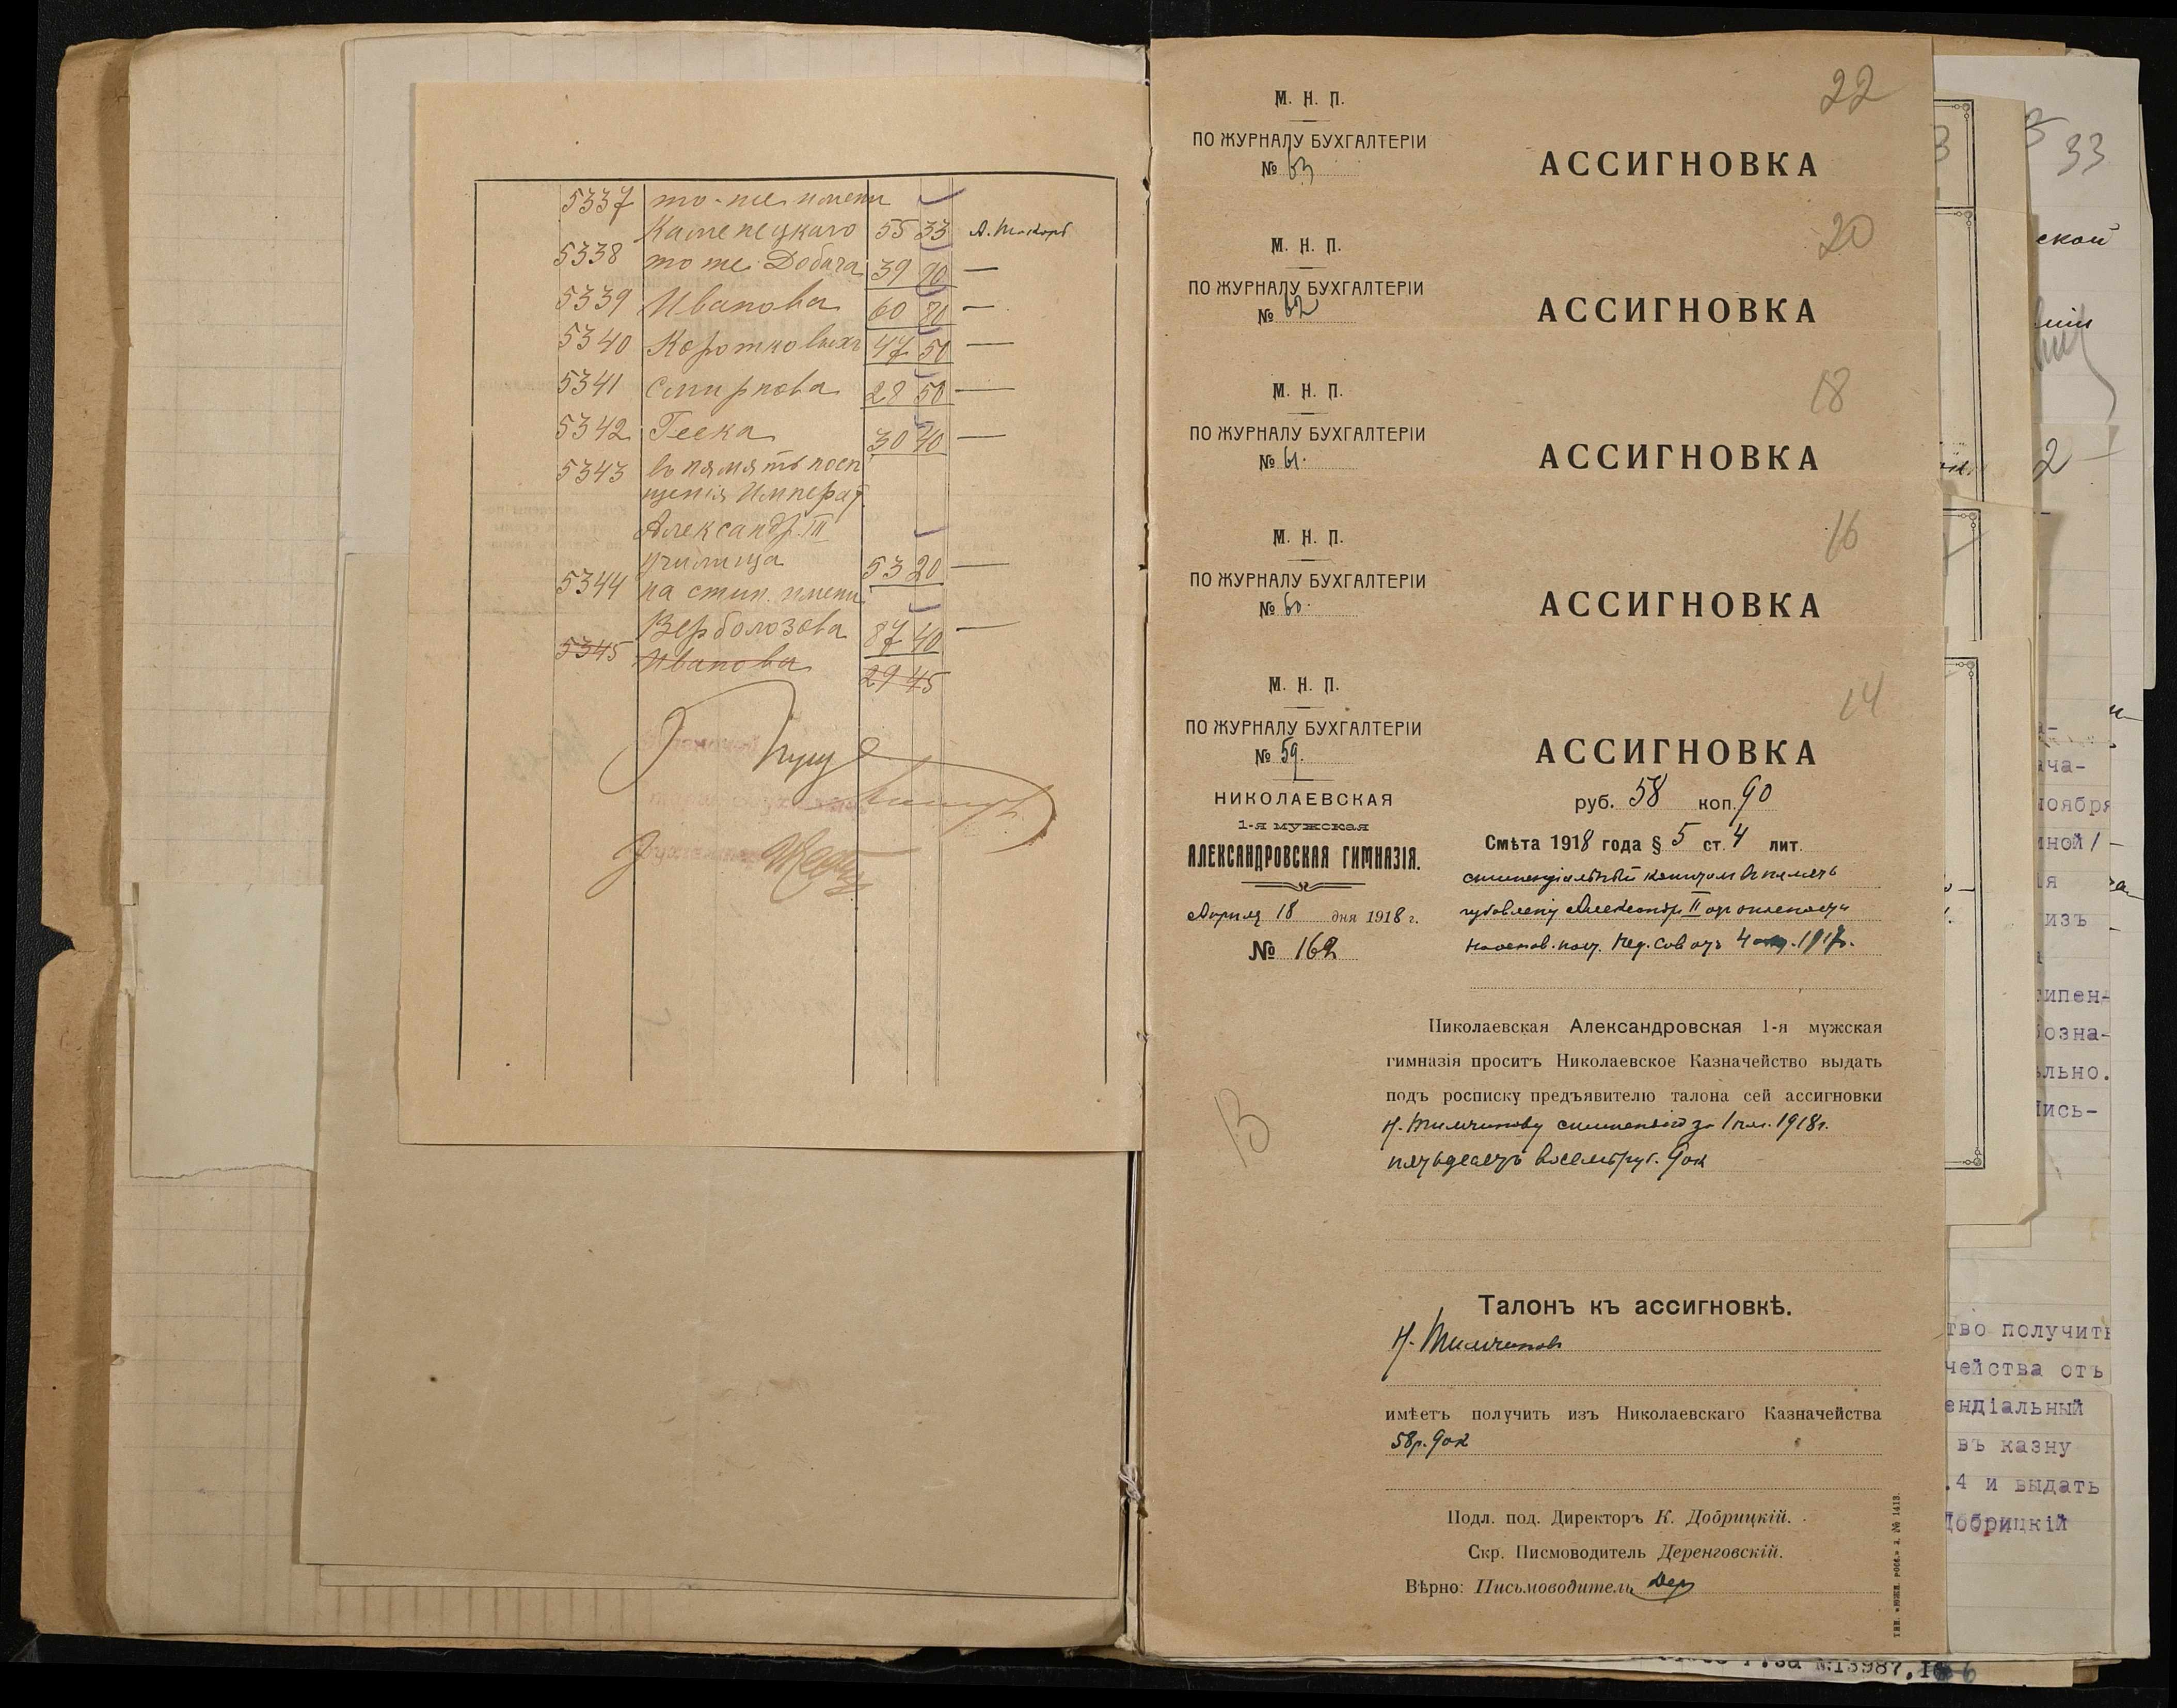 5337 то-же имени
Каменецкаго 55 33
5338 то же Добача 39 90
5339 Иванова 60 80
5340 Коротковыхъ 47 50
5341 Смирнова 28 50
5342 Геека 30 40
5343 въ память посѣ
щенія Императ
Александр. III
училища 53 20
5344 на стип. имени
Верболозова 87 40
5345 Иванова 29 45
22
М. Н. П.
ПО ЖУРНАЛУ БУХГАЛТЕРІИ
№ 63
АССИГНОВКА
20
М. Н. П.
ПО ЖУРНАЛУ БУХГАЛТЕРІИ
№ 62
АССИГНОВКА
18
М. Н. П.
ПО ЖУРНАЛУ БУХГАЛТЕРІИ
№ 61.
АССИГНОВКА
16
М. Н. П.
ПО ЖУРНАЛУ БУХГАЛТЕРІИ
№ 60.
АССИГНОВКА
14
М. Н. П.
ПО ЖУРНАЛУ БУХГАЛТЕРІИ
№ 59.
НИКОЛАЕВСКАЯ
1-я мужская
АЛЕКСАНДРОВСКАЯ ГИМНАЗІЯ.
Апрѣля 18 дня 1918 г.
№ 162
АССИГНОВКА
руб. 58 коп. 90
Смѣта 1918 года § 5 ст. 4 лит.
стипендіальный капиталъ въ память
Александр. II отъ опасности
пед. сов. отъ 4 1917г.
Николаевская Александровская 1-я мужская
гимназія проситъ Николаевское Казначейство выдать
подъ росписку предъявителю талона сей ассигновки
Н. Тимчинову стипендію за 1 пол. 1918г.
пятьдесятъ восемь руб. 90к
13
Талонъ къ ассигновкѣ.
Н. Тимчиновъ
имѣетъ получить изъ Николаевскаго Казначейства
58р. 90к
Подл. под. Директоръ К. Добрицкій.
Скр. Писмоводитель Деренговскій.
Вѣрно: Письмоводитель Дер
ТИП. «ЮЖН. РОСС.» З. № 1413.
33
ской
2
ача-
ноября
ной/
ія
изъ
ипен-
озна-
льно.
ись-
тво получить
чейства отъ
ендіальный
въ казну
.4 и выдать
Добрицкій
№13987.